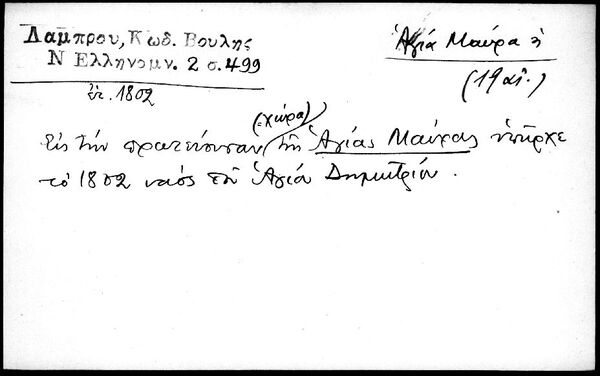 Λαμπρου, Κωδ. Βουλης
Ν Ελληνομν. 2 σ.499
ἔτ. 1802
Ἁγία Μαύρα ἡ
(19 αἰ.)
(=χώρα)
Εἰς τὴν πρωτεύουσαν τῆς Ἁγίας Μαύρας ὑπῆρχε
τὸ 1802 ναὸς τοῦ Ἁγίου Δημητρίου.